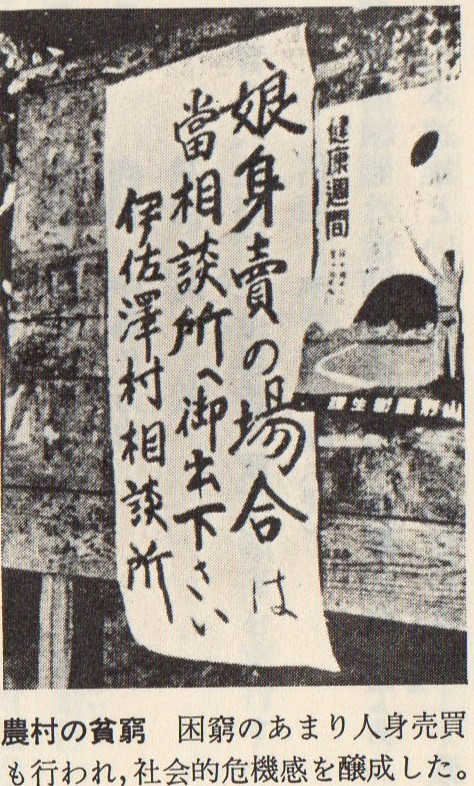 娘身賣の場合は
當相談所へ御出下さい
伊佐澤村相談所
健康週間
農村の貧窮　困窮のあまり人身売買
も行われ，社会的危機感を醸成した。